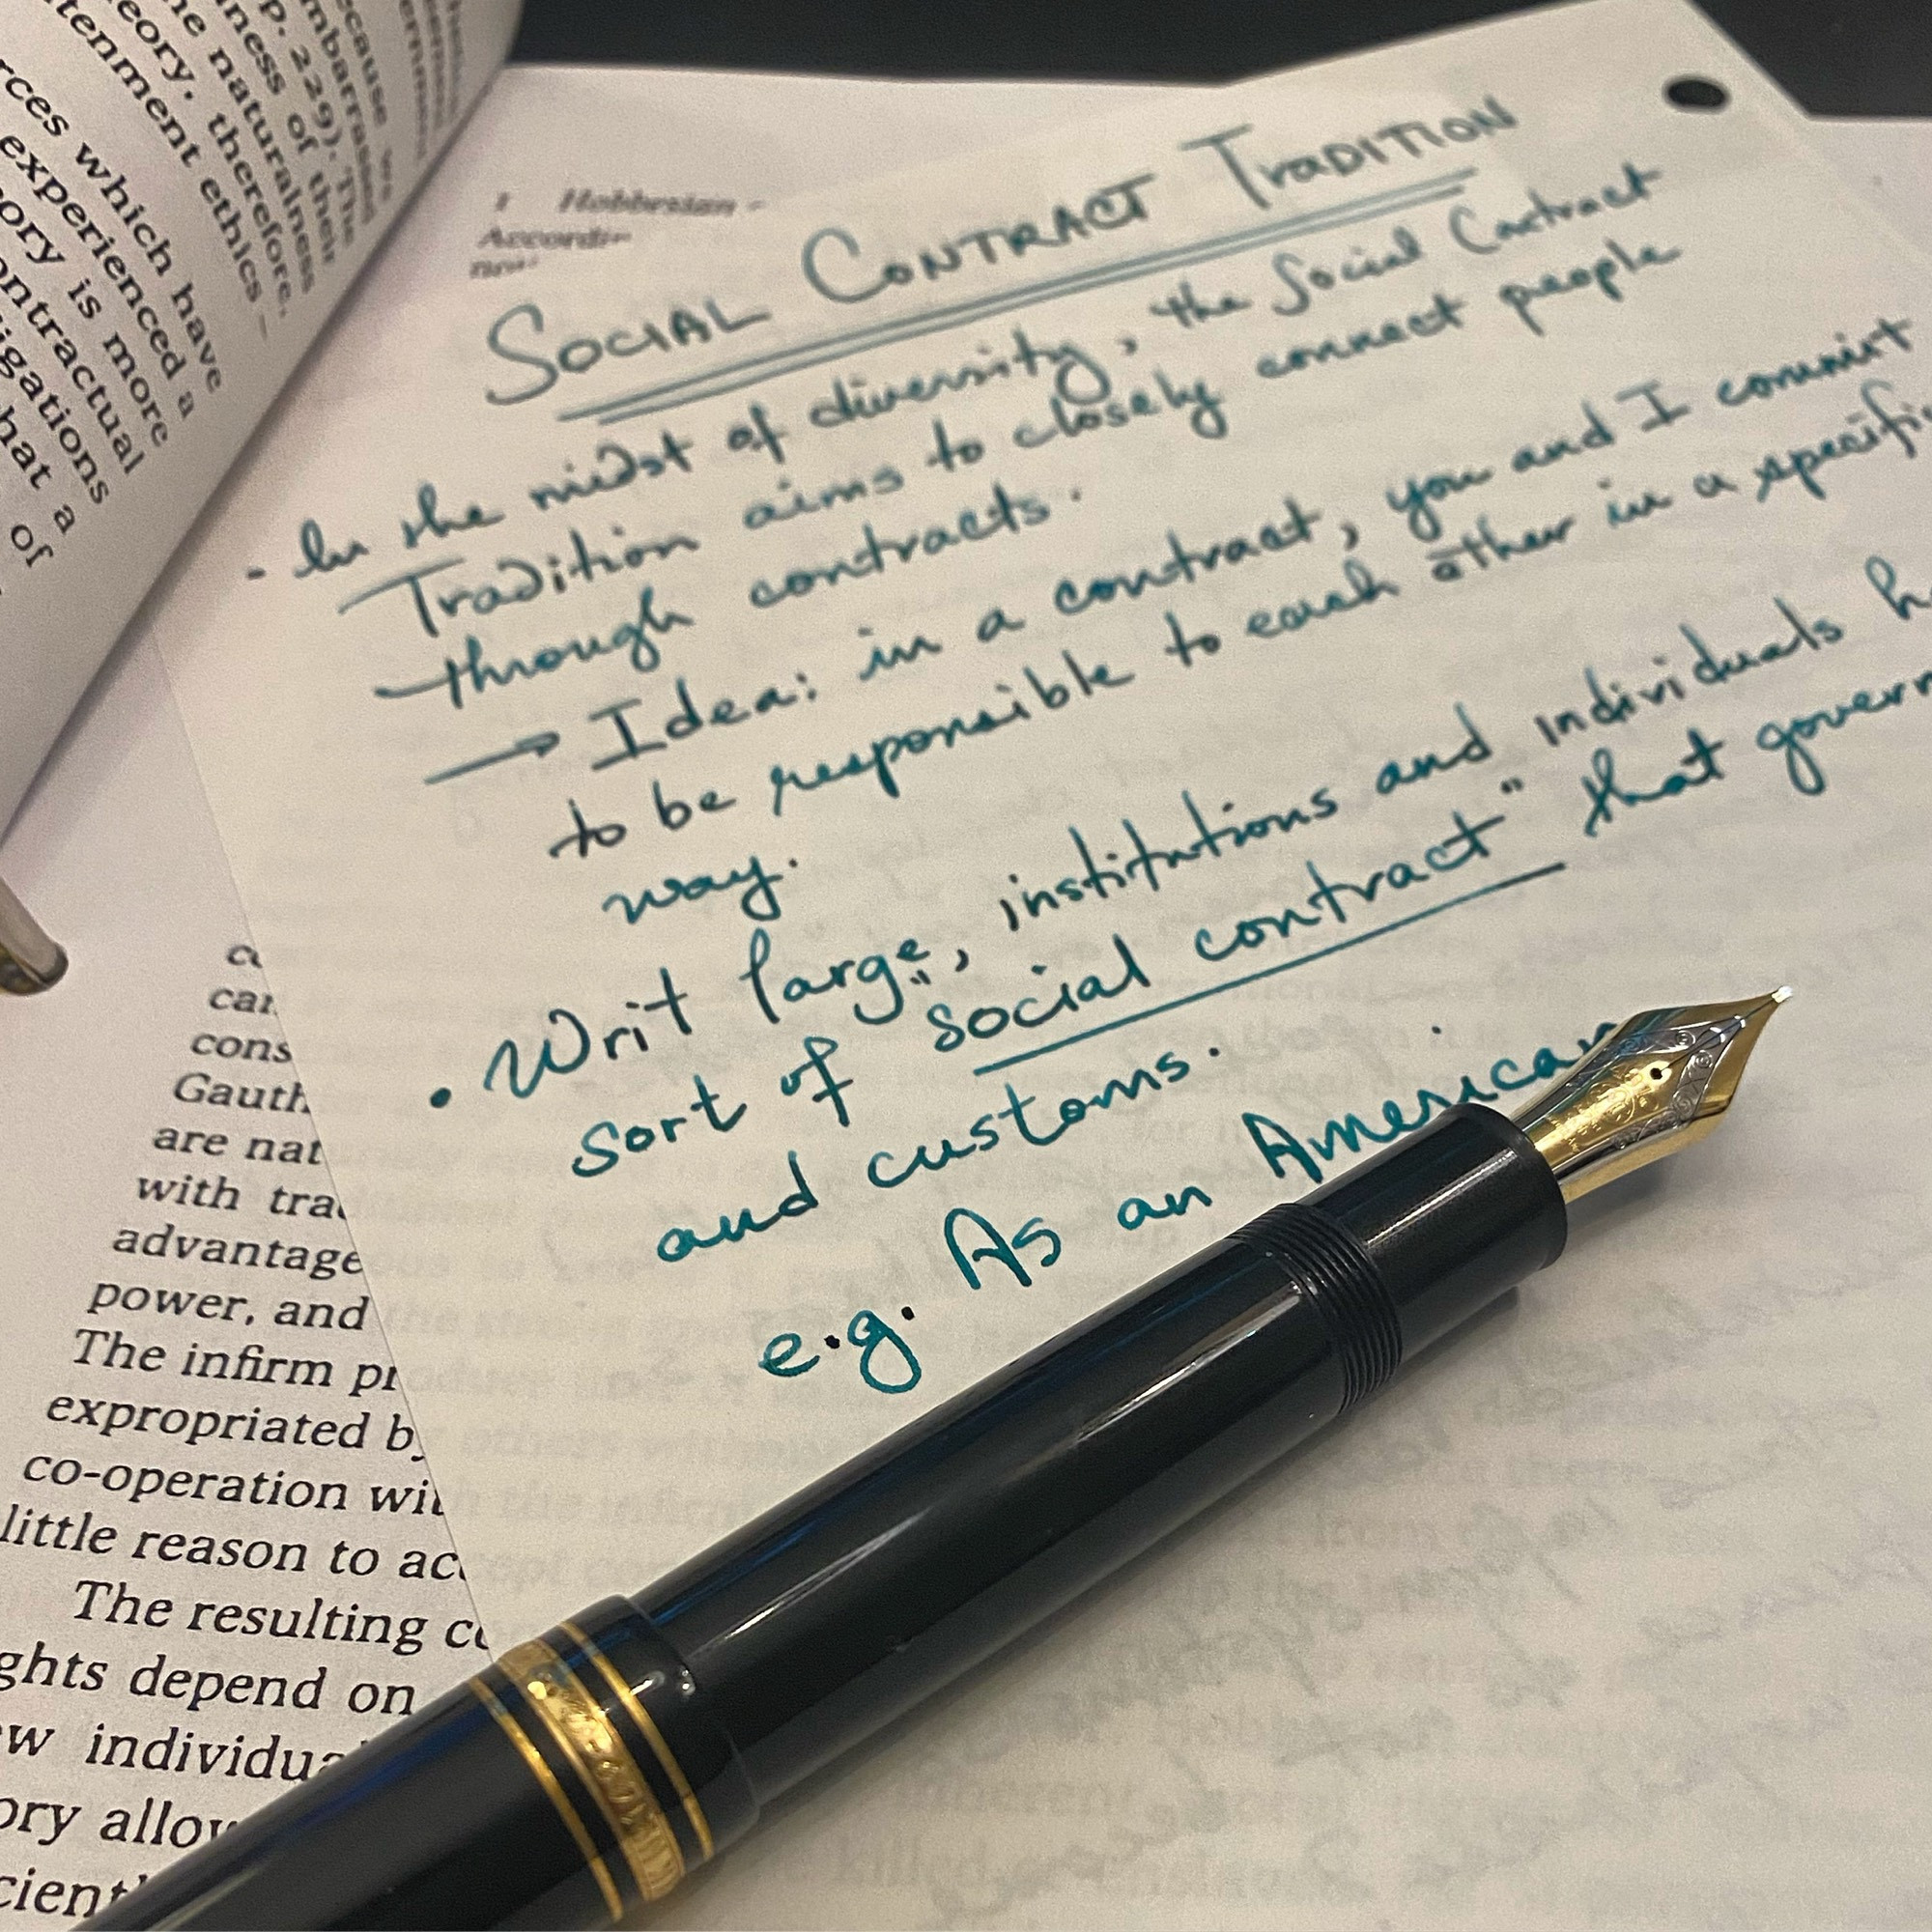 rces which have
experienced a
ory is more
ontractual
igations
hat a
of
tenment ethics –
eory, therefore,
he naturalness
ness of their
p. 229). The
mbarrassed
ecause we
1 Hobbesian
Accordin
SOCIAL CONTRACT TRADITION
- In the midst of diversity, the Social Contract
Tradition aims to closely connect people
through contracts.
→ Idea: in a contract, you and I commit
to be responsible to each other in a specific
way.
• Writ large, institutions and individuals ha
sort of "social contract" that govern
and customs.
e.g. As an American
car
cons
Gauth
are nat
with trad
advantage
power, and
The infirm pr
expropriated by
co-operation wit
little reason to acc
The resulting co
ghts depend on
ew individua
ory allow
cient